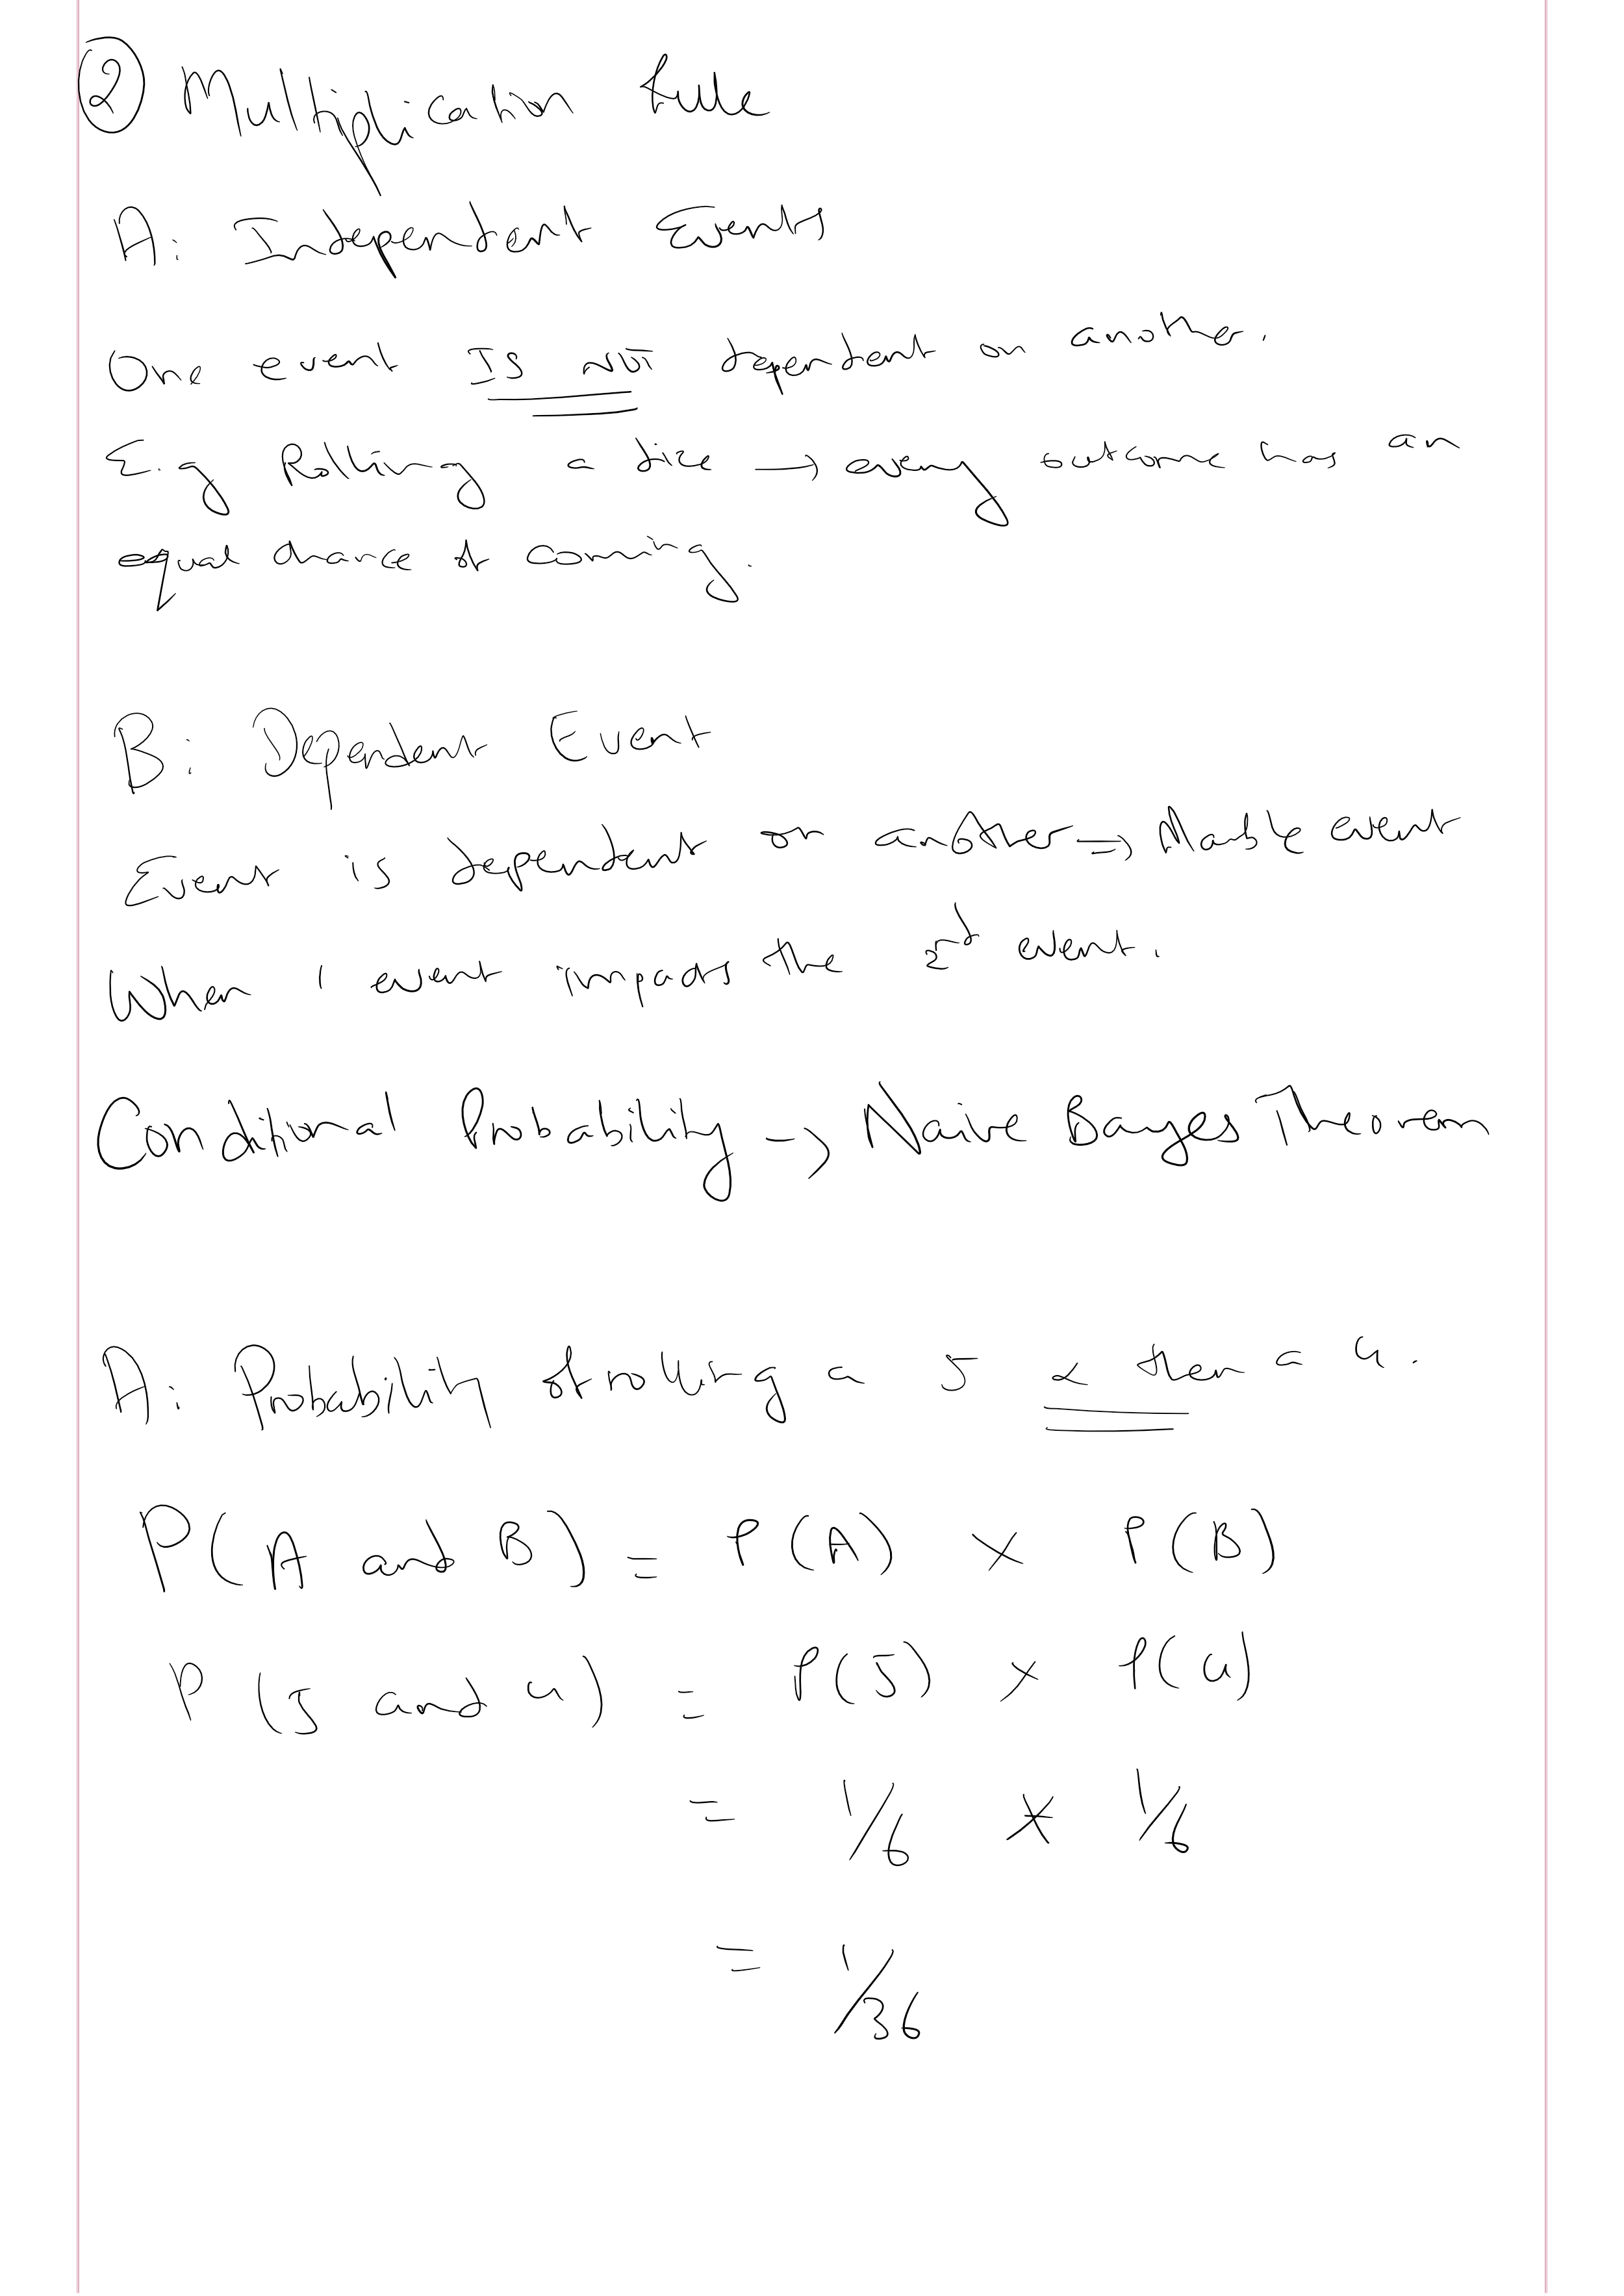 ② Multiplication Rule
A: Independent Events
One event IS NOT dependent on another.
E.g Rolling a dice → every outcome has an
equal chance of coming.
B: Dependent Event
Event is dependent on another ⇒ Marble event
When 1 event impacts the 2nd event.
Conditional Probability → Naive Bayes Theorem
A: Probability of rolling a 5 & then a 4.
P(A and B) = P(A) × P(B)
P(5 and 4) = P(5) × P(4)
= 1/6 * 1/6
= 1/36